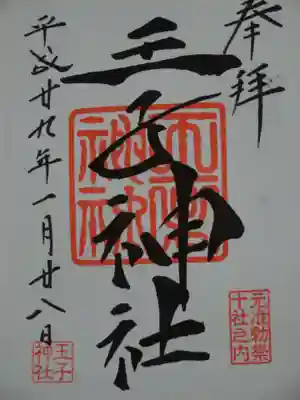 奉拝
王子神社
王子神社
元准勅祭
十社之内
平成廿九年一月廿八日
王子
神社